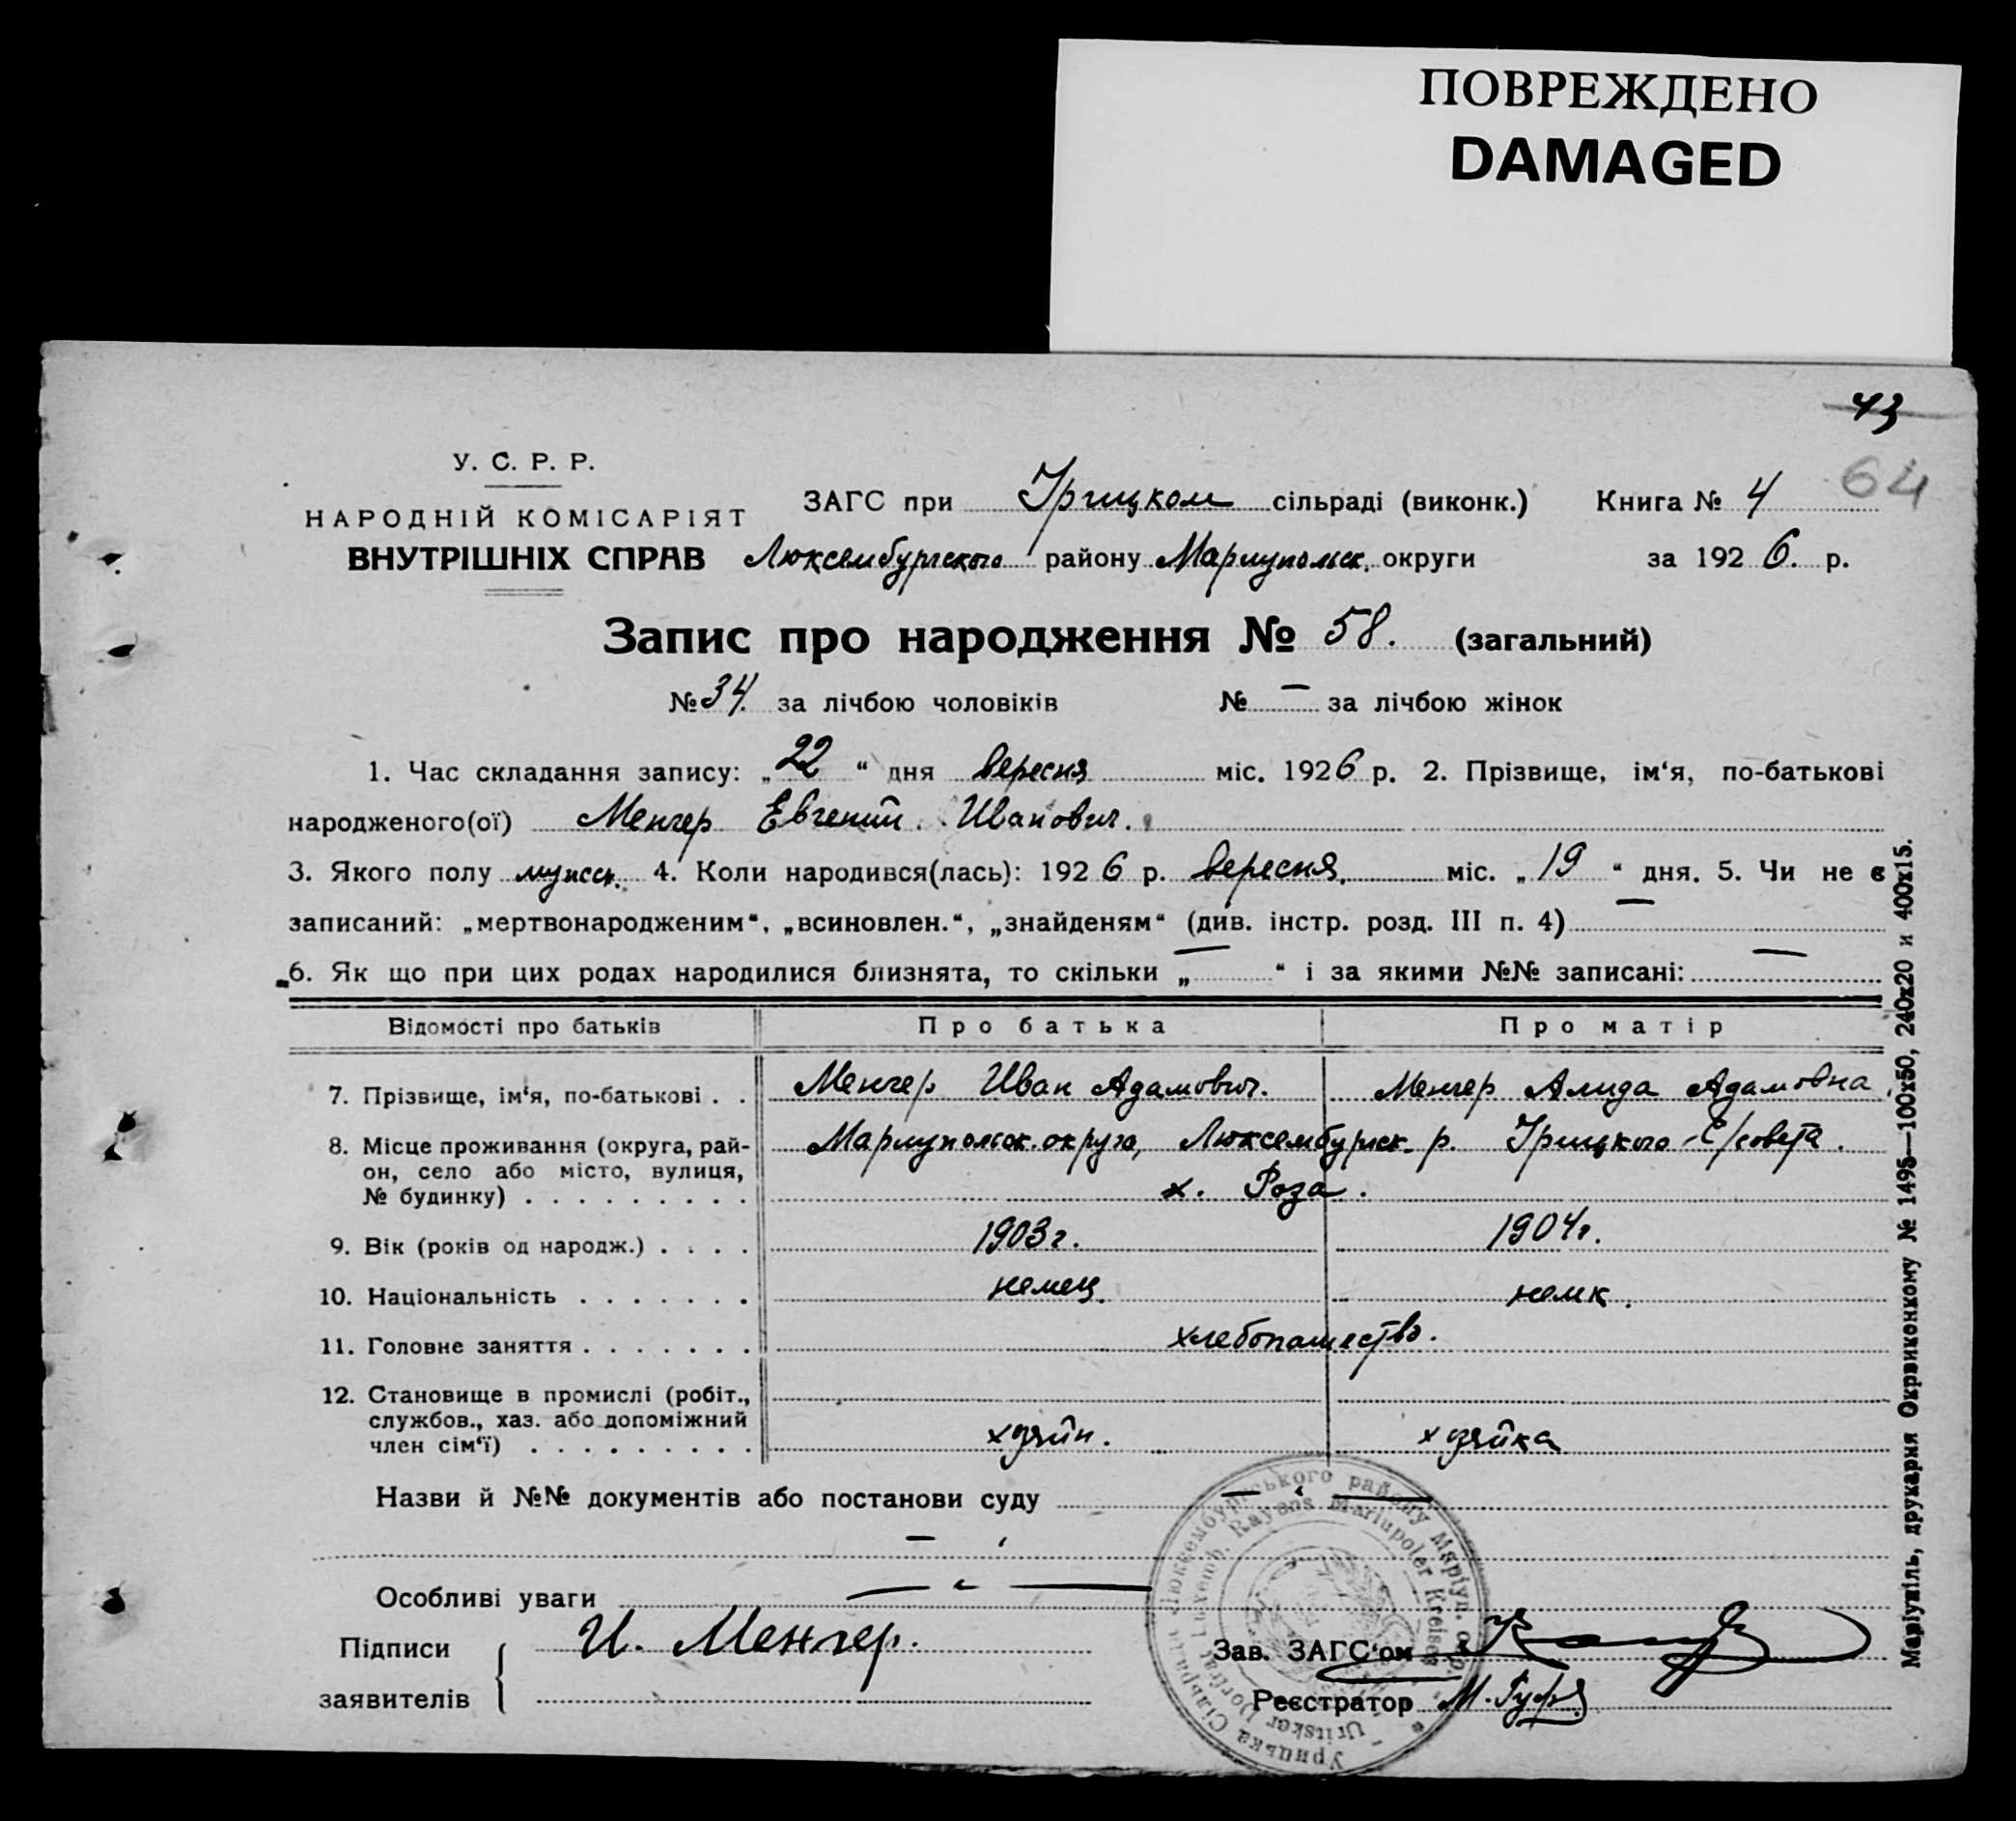 ПОВРЕЖДЕНО
DAMAGED
43
64
У. С. Р. Р.
НАРОДНІЙ КОМІСАРІЯТ
ВНУТРІШНІХ СПРАВ
ЗАГС при Урицком сільраді (виконк.) Книга № 4
Люксембургского району Мариупольск. округи за 1926. р.
Запис про народження № 58. (загальний)
№ 34. за лічбою чоловіків № — за лічбою жінок
1. Час складання запису: „22“ дня вересня міс. 1926 р. 2. Прізвище, ім‘я, по-батькові
народженого(ої) Менгер Евгений Иванович.
3. Якого полу мужск. 4. Коли народився(лась): 1926 р. вересня. міс. „19“ дня. 5. Чи не є
записаний: „мертвонародженим“, „всиновлен.“, „знайденям“ (див. інстр. розд. III п. 4) —
6. Як що при цих родах народилися близнята, то скільки „—“ і за якими №№ записані: —
Відомості про батьків Про батька Про матір
7. Прізвище, ім‘я, по-батькові . . Менгер Иван Адамович. Менгер Алида Адамовна.
8. Місце проживання (округа, рай-
он, село або місто, вулиця,
№ будинку) . . . . . . . . .
Мариупольск. округа, Люксембургск. р. Урицкого с/совета.
х. Роза.
9. Вік (років од народж.) . . . . 1903 г. 1904 г.
10. Національність . . . . . . . немец. немк.
11. Головне заняття . . . . . . . хлебопашество.
12. Становище в промислі (робіт.,
службов., хаз. або допоміжний
член сім‘ї) . . . . . . . . .
хозяйн. хозяйка
Назви й №№ документів або постанови суду — " —
— "
Особливі уваги — " —
Підписи
заявителів
И. Менгер.
Зав. ЗАГС‘ом
Реєстратор М.
Урицька Сільрада Люксембурського району Маріуп. окр.
Uritsker Dorfrat Luxemb. Rayons Mariupoler Kreises
Маріупіль, друкарня Окрвиконкому № 1495—100х50, 240х20 и 400х15.